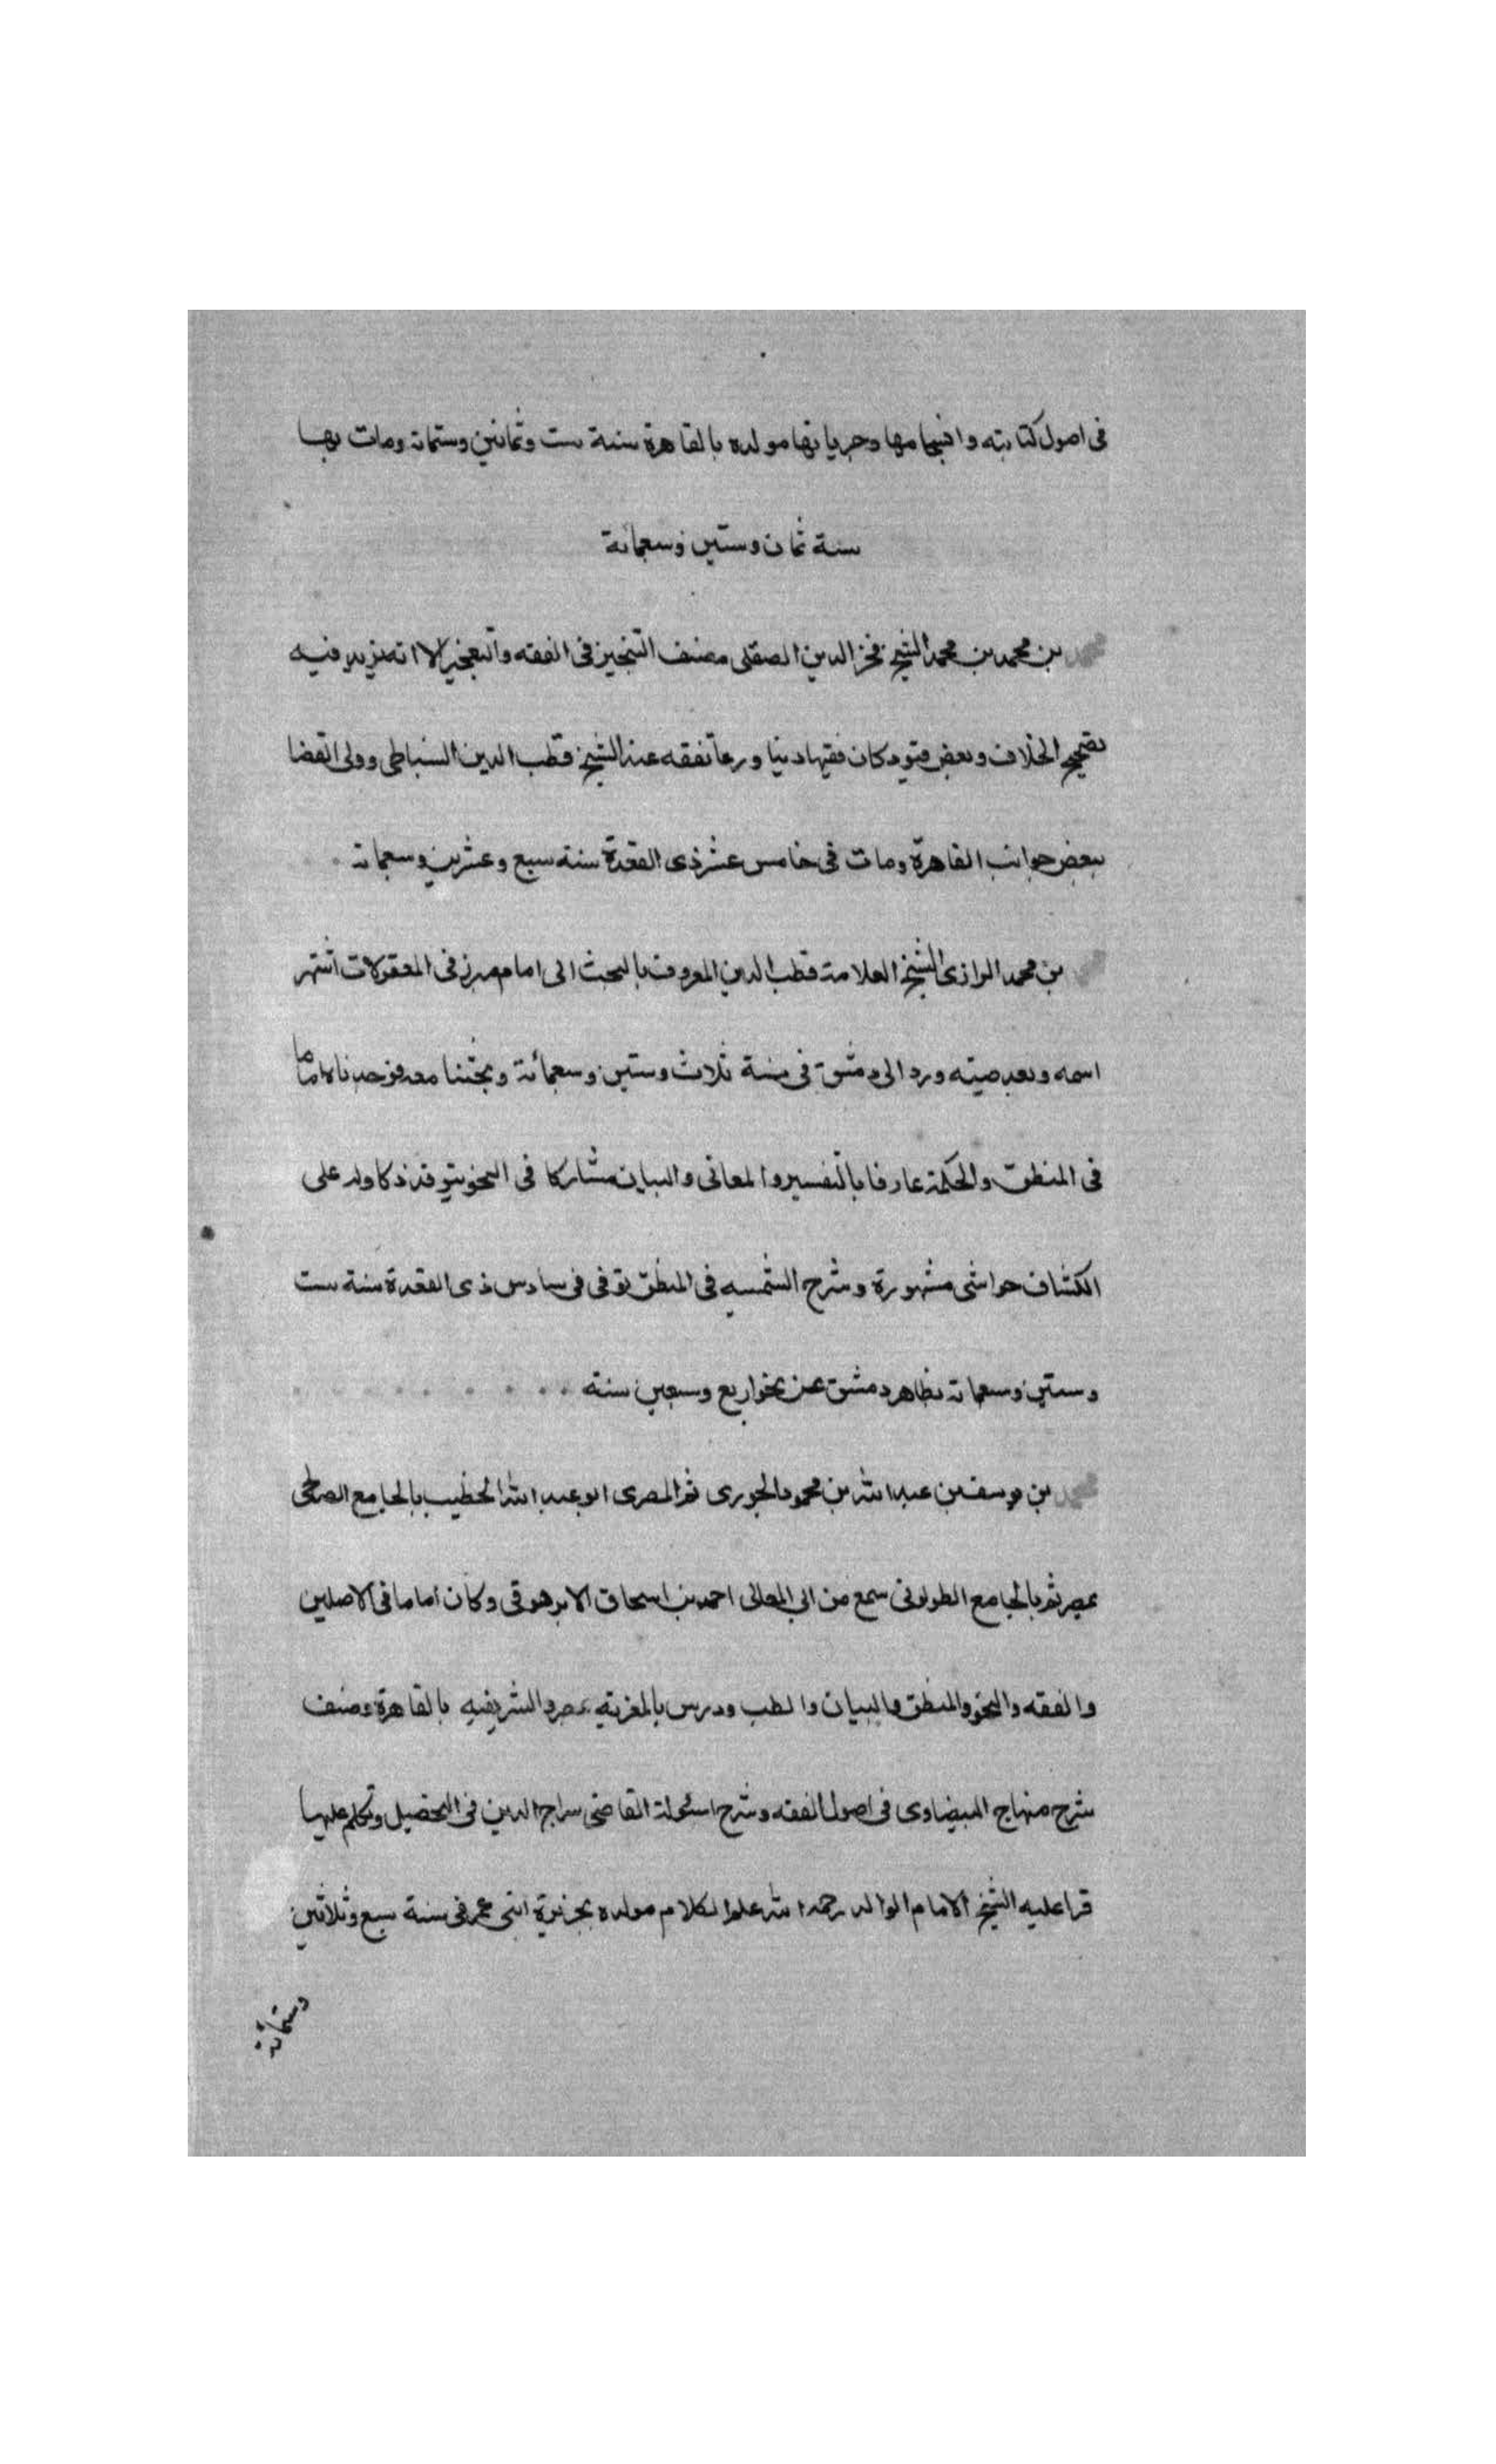 فى اصول كتابته وانسجامها وجرياتها مولده بالقاهرة سنة ست وثمانين وستمائة ومات بها
سنة ثمان وستين وسبعمائة
محمد بن محمد بن محمد الشيخ فخر الدين الصقلى مصنف التنجيز فى الفقه والتعجيز الا انه يزيد فيه
تصحيح الخلاف وبعض قيود كان فقيها دينا ورعا تفقه عند الشيخ قطب الدين السنباطى وولى القضا
ببعض جوانب القاهرة ومات فى خامس عشر ذى القعدة سنة سبع وعشرين وسبعمائة
بن محمد الرازى الشيخ العلامة قطب الدين المعروف بالتحتانى امام مبرز فى المعقولات اشتهر
اسمه وبعد صيته ورد الى دمشق فى سنة ثلاث وستين وسبعمائة وبحثنا معه فوجدناه اماما
فى المنطق والحكمة عارفا بالتفسير والمعانى والبيان مشاركا فى النحو يتوقد ذكا وله على
الكشاف حواشى مشهورة وشرح الشمسيه فى المنطق توفى فى سادس ذى القعدة سنة ست
وستين وسبعمائة بظاهر دمشق عن نحو اربع وسبعين سنة
محمد بن يوسف بن عبد الله بن محمود الجزرى ثم المصرى ابو عبد الله الخطيب بالجامع الصالحى
بمصر ثم بالجامع الطولونى سمع من ابى المعالى احمد بن اسحاق الابرهوقى وكان اماما فى الاصلين
والفقه والنحو والمنطق والبيان والطب ودرس بالمعزية بمصر والشريفيه بالقاهرة وصنف
شرح منهاج البيضاوى فى اصول الفقه وشرح اسئولة القاضى سراج الدين فى التحصيل وتكلم عليها
قرا عليه الشيخ الامام الوالد رحمه الله علم الكلام مولده بجزيرة ابنى عمر فى سنة سبع وثلاثين
وستمائة